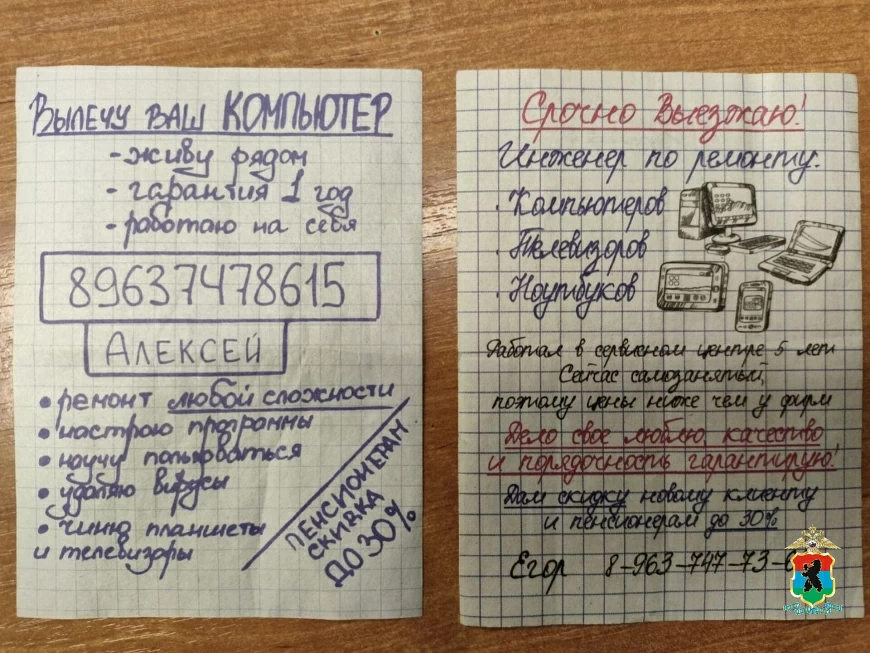 Вылечу ваш КОМПЬЮТЕР
-живу рядом
-гарантия 1 год
-работаю на себя
89637478615
Алексей
• ремонт любой сложности
• настрою программы
• научу пользоваться
• удаляю вирусы
• чиню планшеты
и телевизоры
ПЕНСИОНЕРАМ
СКИДКА
ДО 30%
Срочно Выезжаю!
Инженер по ремонту:
• Компьютеров
• Телевизоров
• Ноутбуков
Работал в сервисном центре 5 лет
Сейчас самозанятый,
поэтому цены ниже чем у фирм
Дело свое люблю, качество
и порядочность гарантирую!
Дам скидку новому клиенту
и пенсионерам до 30%
Егор 8-963-747-73-